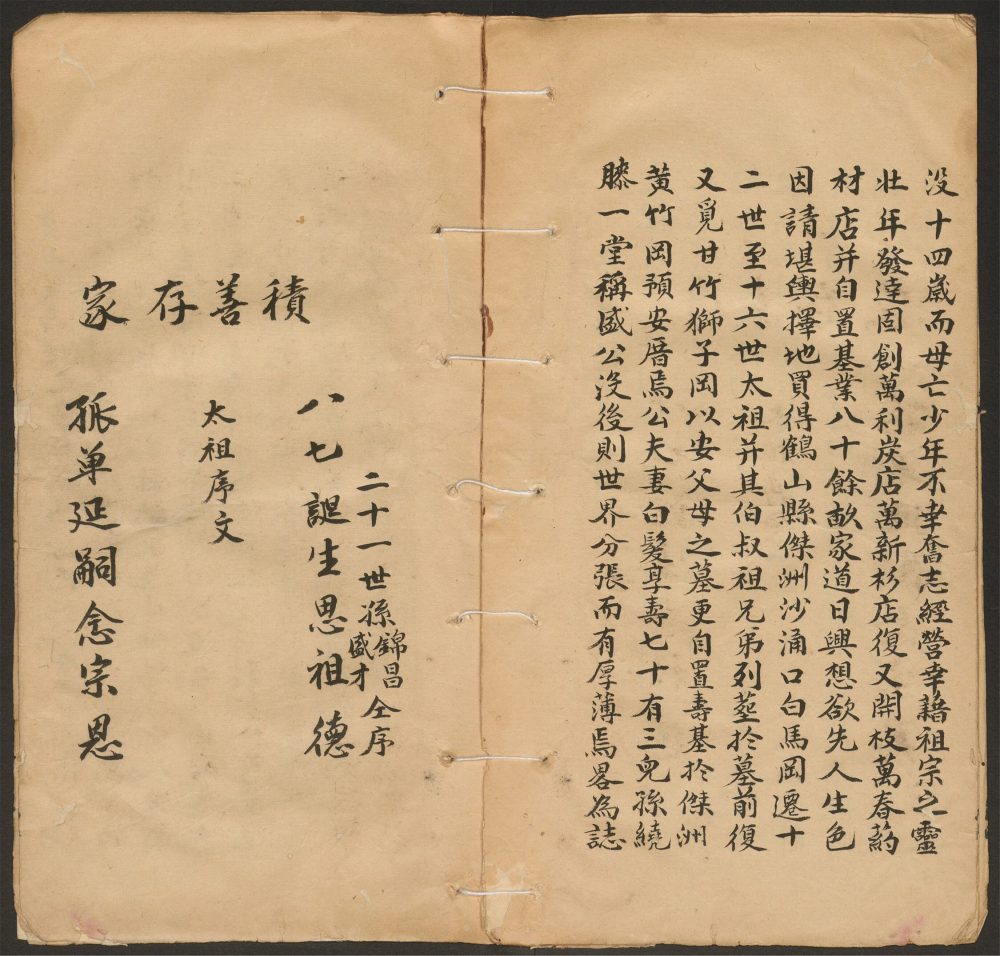 没十四歲而母亡少年不幸奮志經營幸藉祖宗之靈
壯年發達固創萬利炭店萬新杉店復又開枝萬春葯
材店并自置基業八十餘畝家道日興想欲先人生色
因請堪輿擇地買得鶴山縣傑洲沙涌口白馬岡遷十
二世至十六世太祖并其伯叔祖兄弟列塟於墓前復
又覓甘竹獅子岡以安父母之墓更自置壽基於傑洲
黃竹岡預安厝焉公夫妻白髮享壽七十有三兒孫繞
膝一堂稱盛公没後則世界分張而有厚薄焉畧為誌
積善存家
二十一世孫錦昌盛才仝序
八七誕生思祖德
太祖序文
孤单延嗣念宗恩